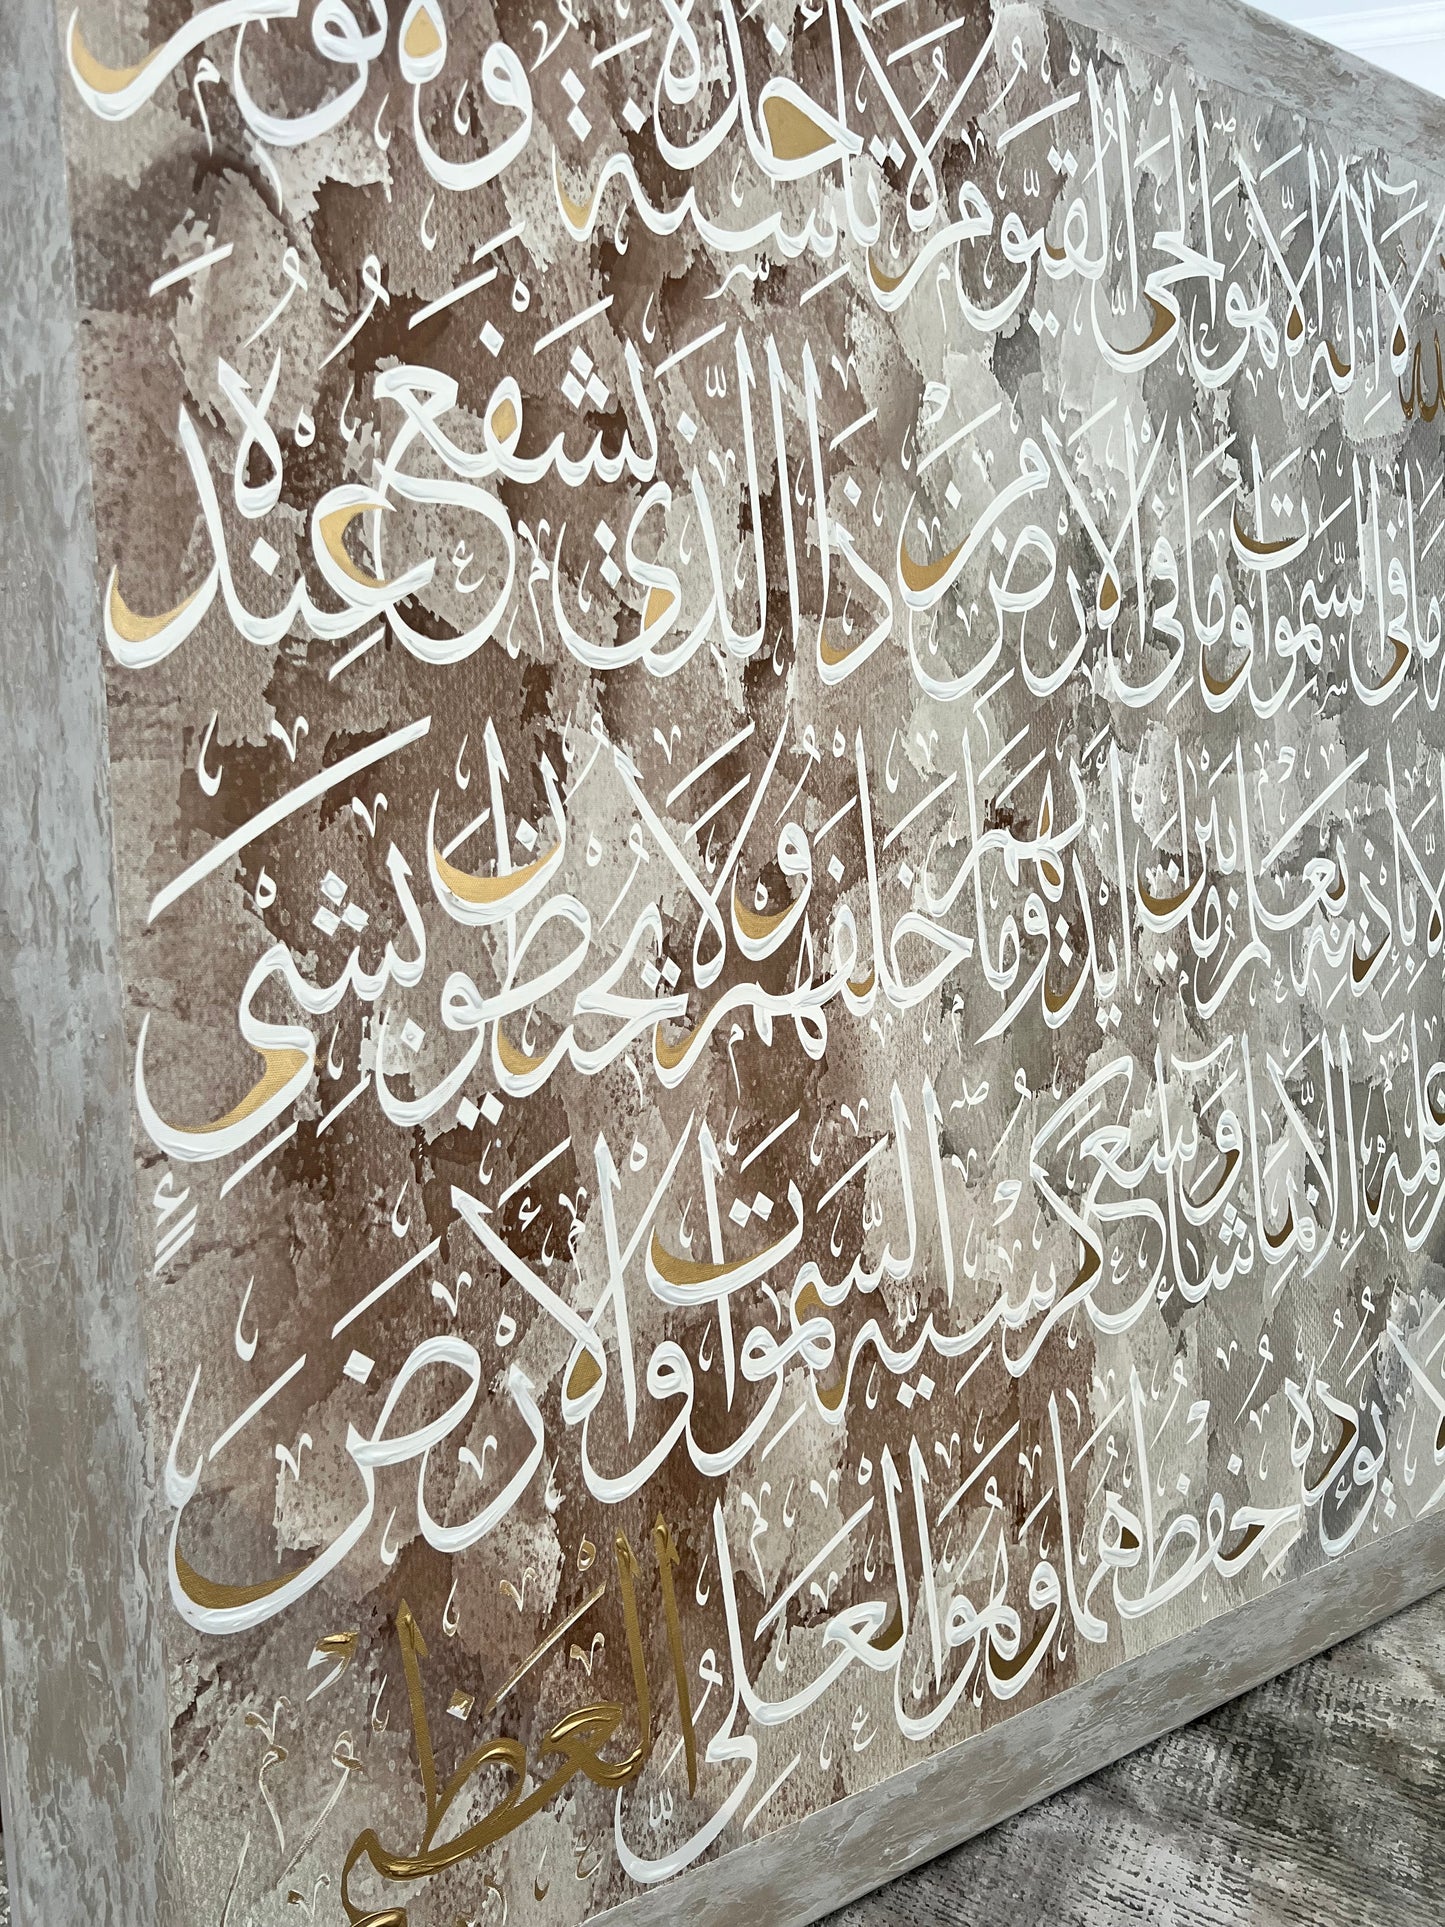 الله لا إله إلا هو الحي القيوم لا تأخذه سنة ولا نوم
ما في السموات وما في الارض من ذا الذي يشفع عنده
إلا بإذنه يعلم ما بين أيديهم وما خلفهم ولا يحيطون بشيء
علمه إلا بما شاء وسع كرسيه السموات والارض
ولا يؤده حفظهما وهو العلي العظيم